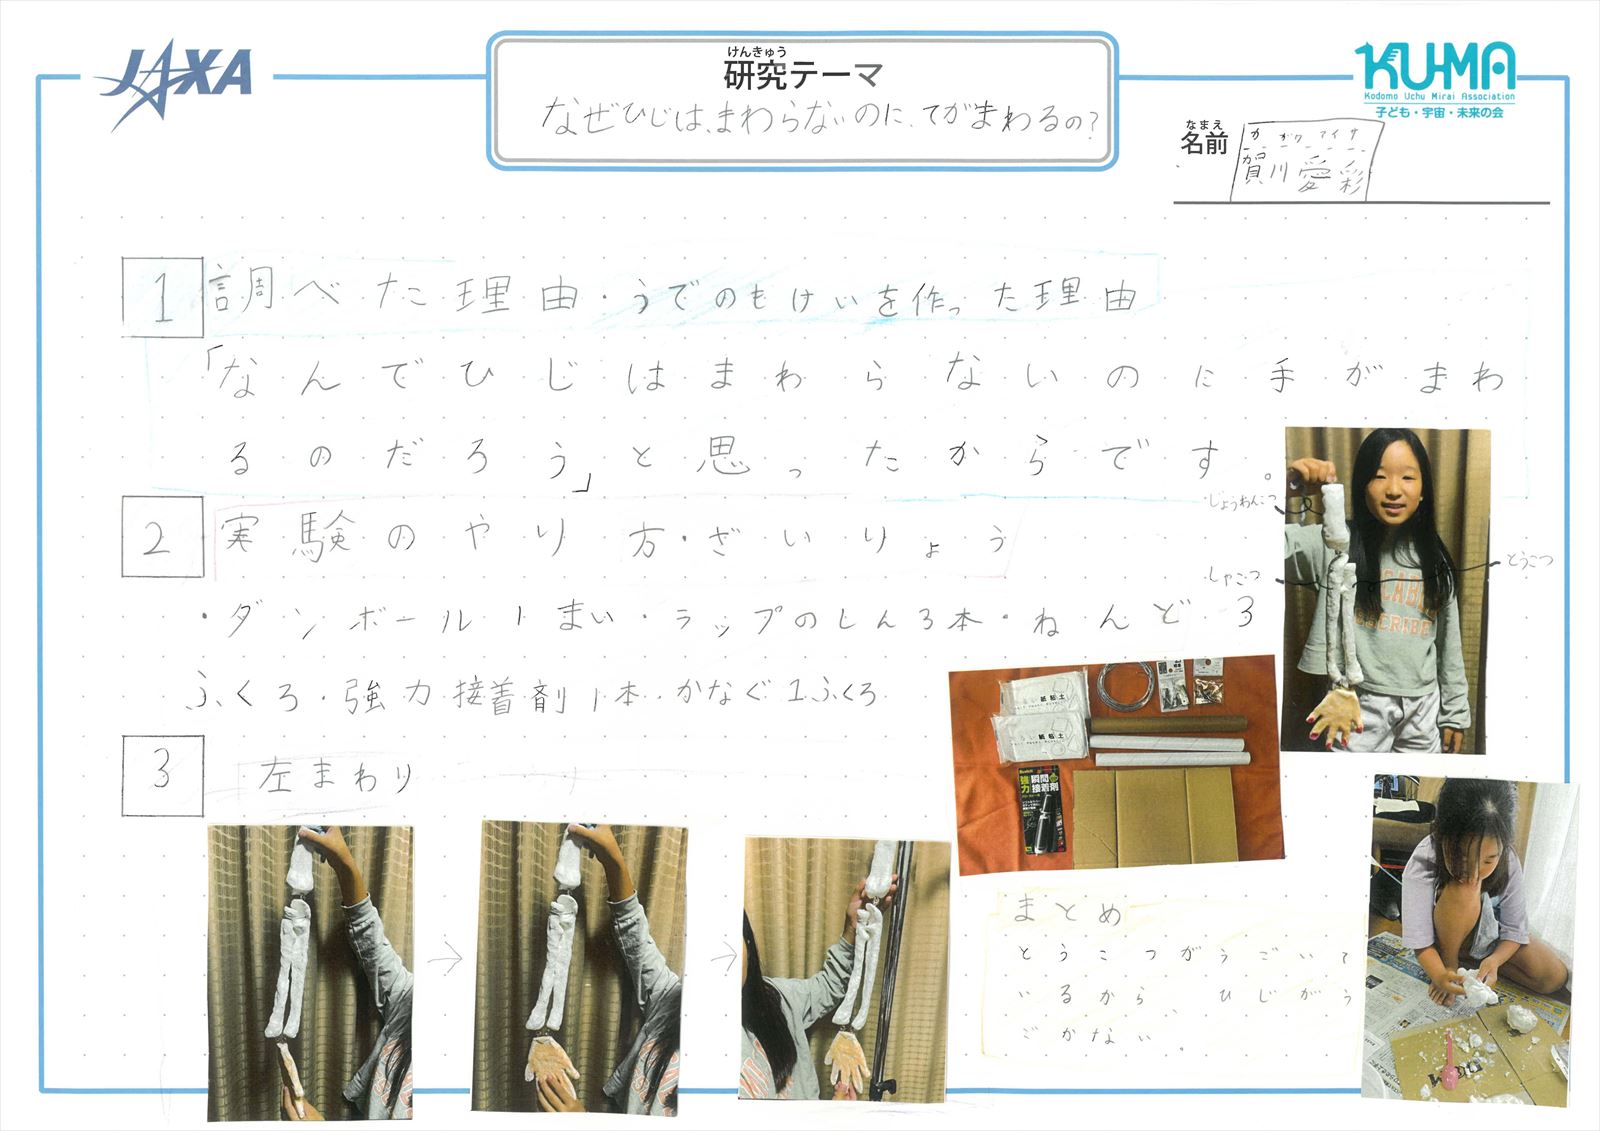 JAXA
けんきゅう
研究テーマ
なぜひじは、まわらないのに、てがまわるの?
KUMA
Kodomo Uchu Mirai Association
子ども・宇宙・未来の会
なまえ
名前
カ ガワ アイサ
賀川愛彩
1 調べた理由・うでのもけいを作った理由
「なんでひじはまわらないのに手がまわ
るのだろう」と思ったからです。
2 実験のやり方・ざいりょう
・ダンボール1まい・ラップのしん3本・ねんど3
ふくろ・強力接着剤1本・かなぐ1ふくろ
じょうわんこつ
しゃこつ
とうこつ
紙粘土
紙粘土
強力
瞬間接着剤
3 左まわり
→ →
まとめ
とうこつがうごいて
いるから、ひじがう
ごかない。